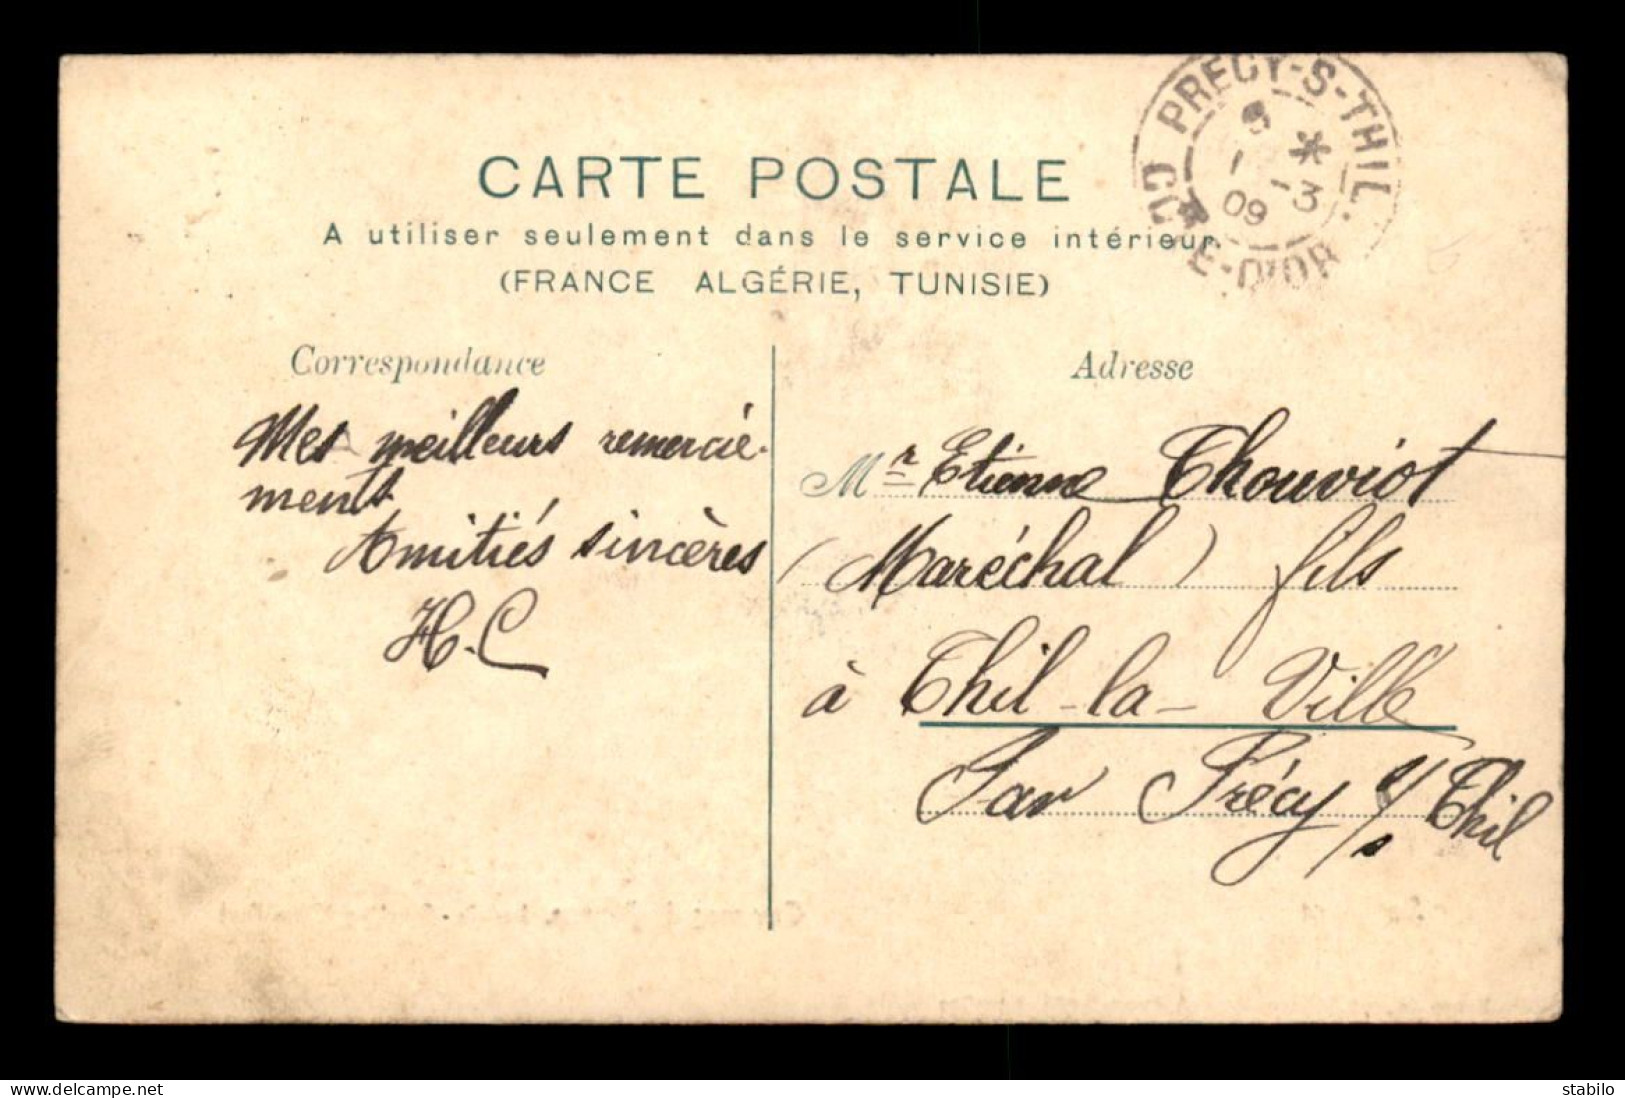 CARTE POSTALE
A utiliser seulement dans le service intérieur
(FRANCE ALGÉRIE, TUNISIE)
PRECY-S-THIL.
CÔTE-D'OR
*
1 - 3
09
Correspondance
Mes meilleurs remercie-
ments
Amitiés sincères
H. C
Adresse
Mr Etienne Thouviot
(Maréchal) fils
à Thil-la-Ville
Par Précy s/s Thil
delcampe.net
stabilo